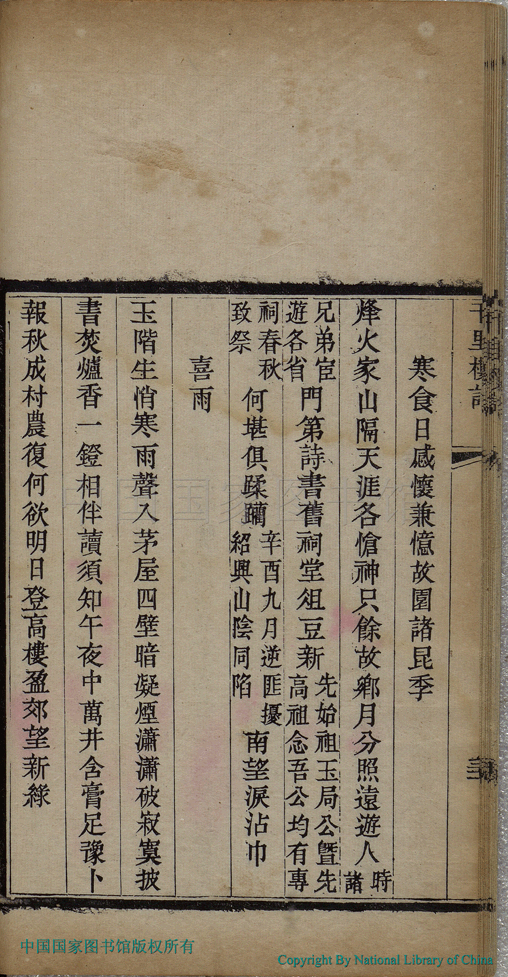 千里樓詩
寒食日感懷兼憶故園諸昆季
烽火家山隔天涯各愴神只餘故鄉月分照遠遊人時諸
兄弟宦遊各省門第詩書舊祠堂俎豆新先始祖玉局公暨先高祖念吾公均有專
祠春秋致祭何堪俱蹂躪辛酉九月逆匪擾紹興山陰同陷南望淚沾巾
喜雨
玉階生悄寒雨聲入茅屋四壁暗凝煙瀟瀟破寂寞披
書焚爐香一鐙相伴讀須知午夜中萬井含膏足豫卜
報秋成村農復何欲明日登高樓盈郊望新綠
中国国家图书馆版权所有
Copyright By National Library of China